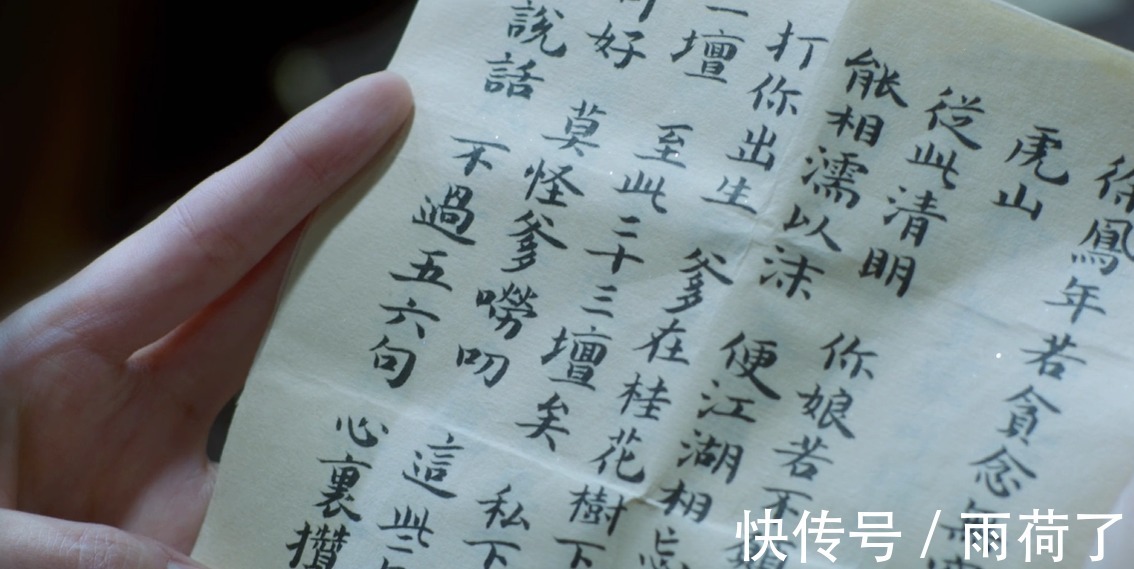 徐鳳年若貪念
虎山
從此清明 你娘若不
能相濡以沫 便江湖相忘
打你出生 爹在桂花樹下
一壇 至此二十三壇矣 私下
好 莫怪爹嘮叨 這些
說話 不過五六句 心裏攢
快传号 / 雨荷了